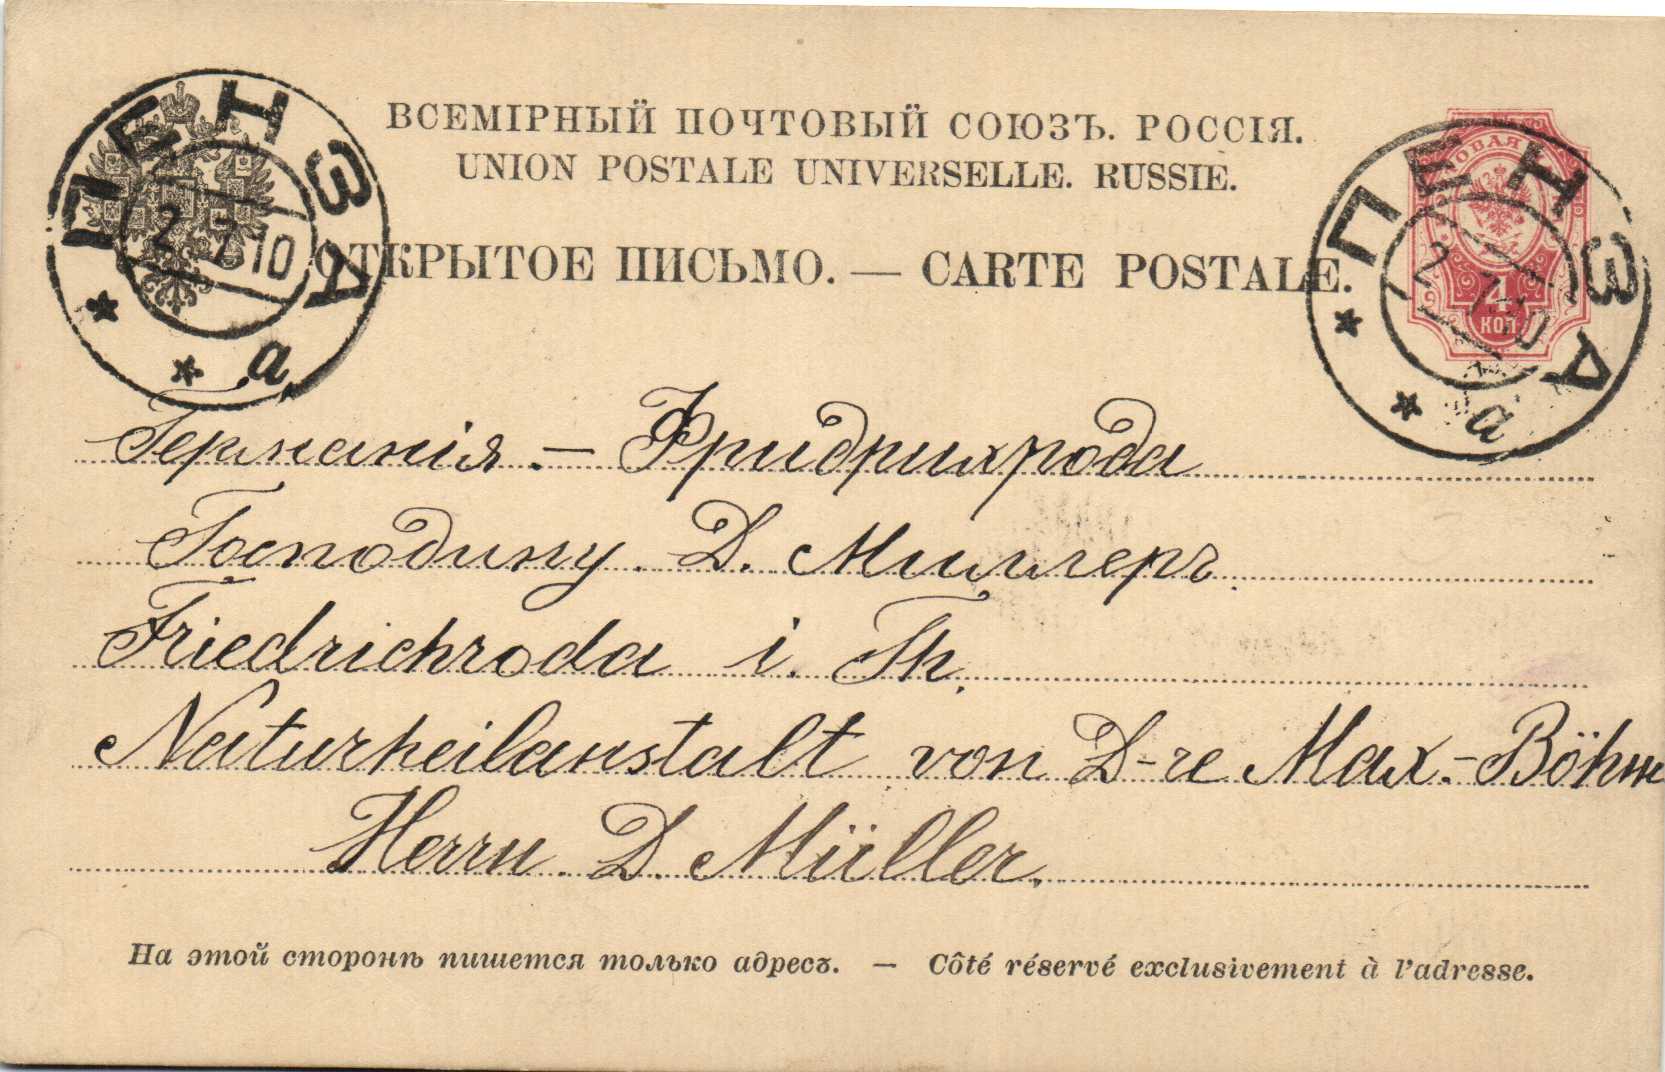 ВСЕМІРНЫЙ ПОЧТОВЫЙ СОЮЗЪ. РОССІЯ.
UNION POSTALE UNIVERSELLE. RUSSIE.
ОТКРЫТОЕ ПИСЬМО. — CARTE POSTALE.
ПЕНЗА
2 7 10
а
ПЕНЗА
2 7 10
а
4
КОП
Германія. — Фридрихрода
Господину. Д. Миллеръ.
Friedrichroda i. Th.
Naturheilanstalt von D-re Max.-Böhm
Herrn D. Müller.
На этой сторонѣ пишется только адресъ. — Côté réservé exclusivement à l'adresse.